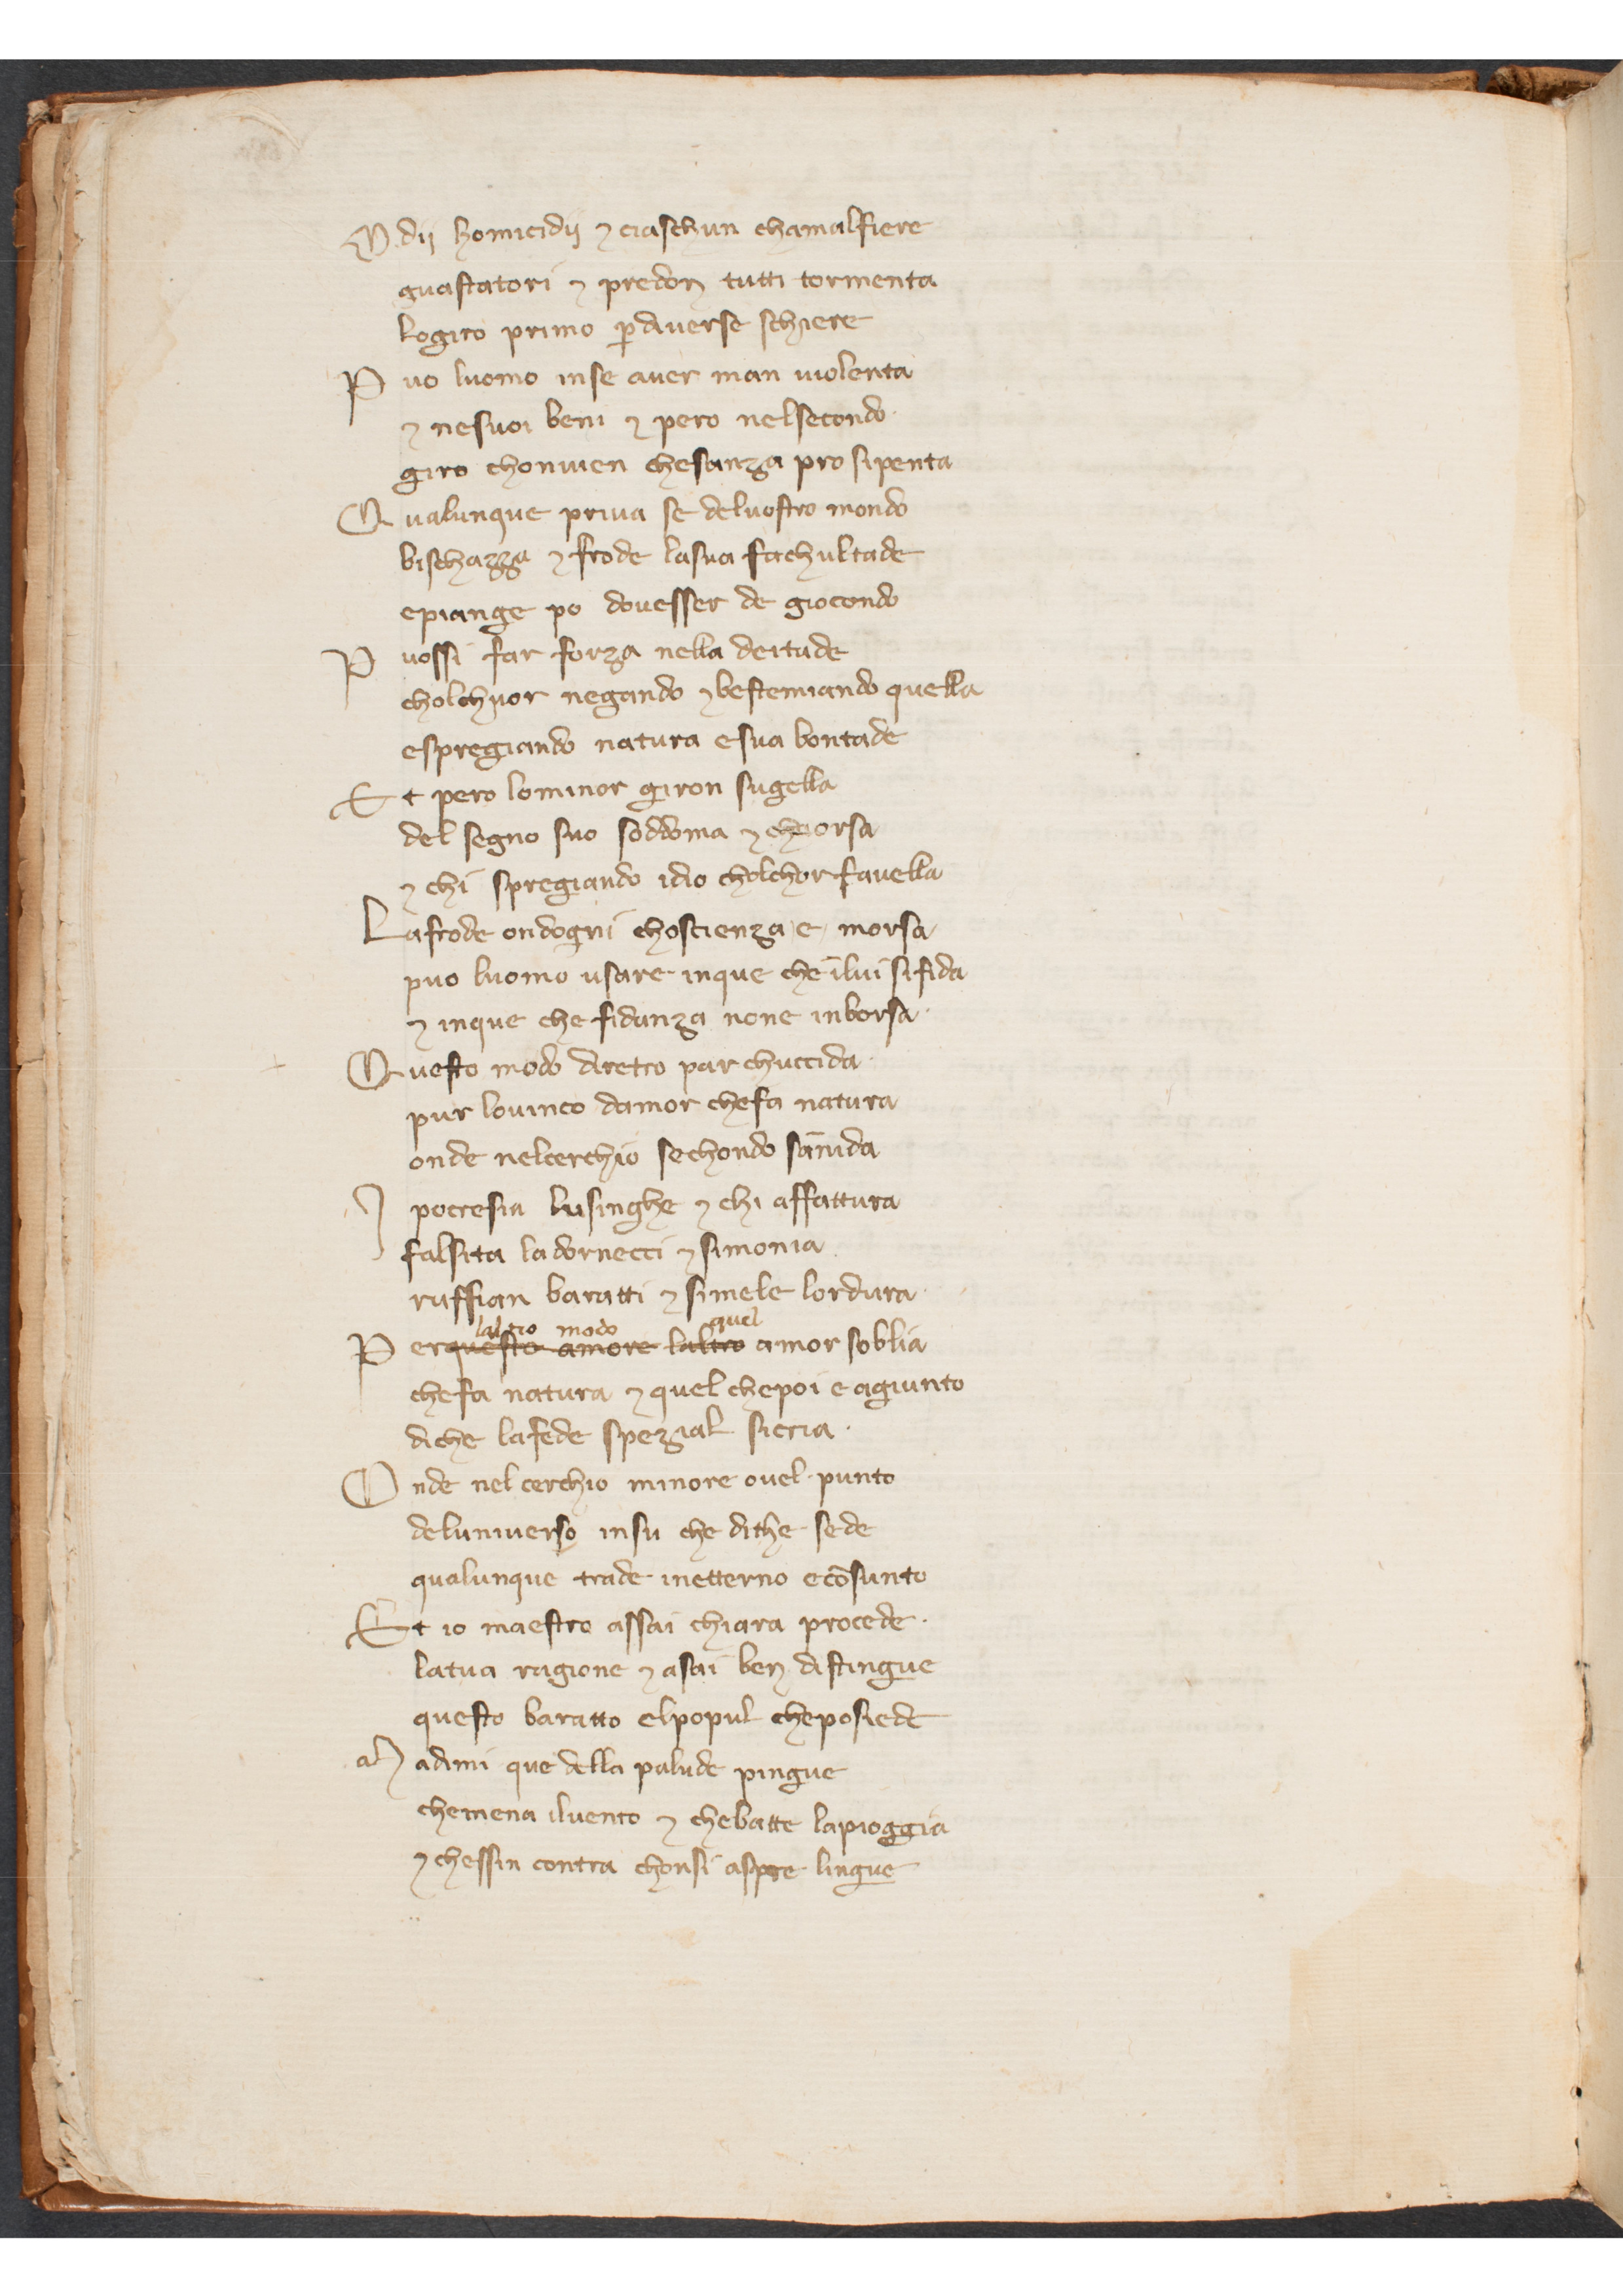 O dij homicidij ⁊ ciaschun chamalfiere
guastatori ⁊ predon tutti tormenta
logiro primo ꝑ diuerse schiere
P uo luomo inse auer man uiolenta
⁊ nesuoi beni ⁊ pero nelsecondo
giro chonuien chesanza pro sipenta
Q ualunque priua se deluostro mondo
bischazza ⁊ frode lasua fachultade
epiange po douesser de giocondo
P uossi far forza nella deitade
cholchuor negando ⁊ bestemiando quella
espregiando natura esua bontade
E t pero lominor giron sugella
del segno suo soddoma ⁊ chaorsa
⁊ chi spregiando idio cholchor fauella
L afrode ondogni choscienza e morsa
puo luomo usare inque che ī lui sifida
⁊ inque che fidanza none inborsa
Q uesto modo diretro par chuccida
pur louinco damor chefa natura
onde nelcerchio sechondo sānida
I pocresia lusinghe ⁊ chi affattura
falsita ladornecci ⁊ simonia
ruffian baratti ⁊ simele lordura
laltro modo quel
P erquesto amore laltro amor soblia
chefa natura ⁊ quel chepoi e agiunto
diche lafede spezial sicria
O nde nel cerchio minore ouel punto
deluniuerso insu che dithe sede
qualunque trade inetterno e cōsunto
E t io maestro assai chiara procede
latua ragione ⁊ asai ben distingue
questo baratto elpopul cheposiede
M adimi que della palude pingue
chemena iluento ⁊ chebatte lapioggia
⁊ chessin contra chonsi aspre lingue